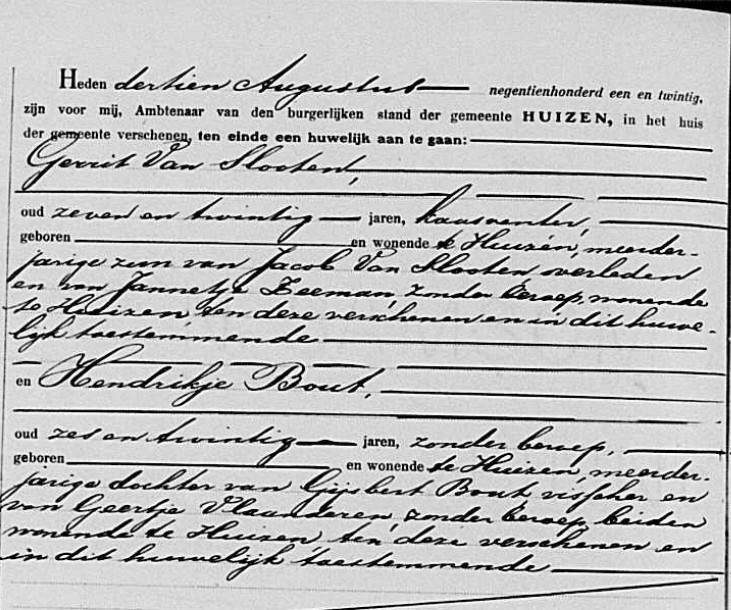 Heden dertien Augustus negentienhonderd een en twintig,
zijn voor mij, Ambtenaar van den burgerlijken stand der gemeente HUIZEN, in het huis
der gemeente verschenen, ten einde een huwelijk aan te gaan:
Gerrit Van Slooten,
oud zeven en twintig jaren, kaasventer,
geboren en wonende te Huizen, meerder-
jarige zoon van Jacob Van Slooten overleden
en van Jannetje Zeeman, zonder beroep, wonende
te Huizen ten deze verschenen en in dit huwe-
lijk toestemmende
en Hendrikje Bout,
oud zes en twintig jaren, zonder beroep,
geboren en wonende te Huizen, meerder-
jarige dochter van Gijsbert Bout visscher en
van Geertje Vlaanderen, zonder beroep, beiden
wonende te Huizen ten deze verschenen en
in dit huwelijk toestemmende